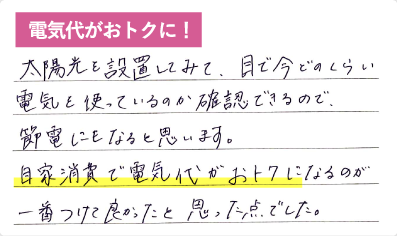 電気代がおトクに！
太陽光を設置してみて、目で今どのくらい
電気を使っているのか確認できるので、
節電にもなると思います。
自家消費で電気代がおトクになるのが
一番つけて良かったと思った点でした。